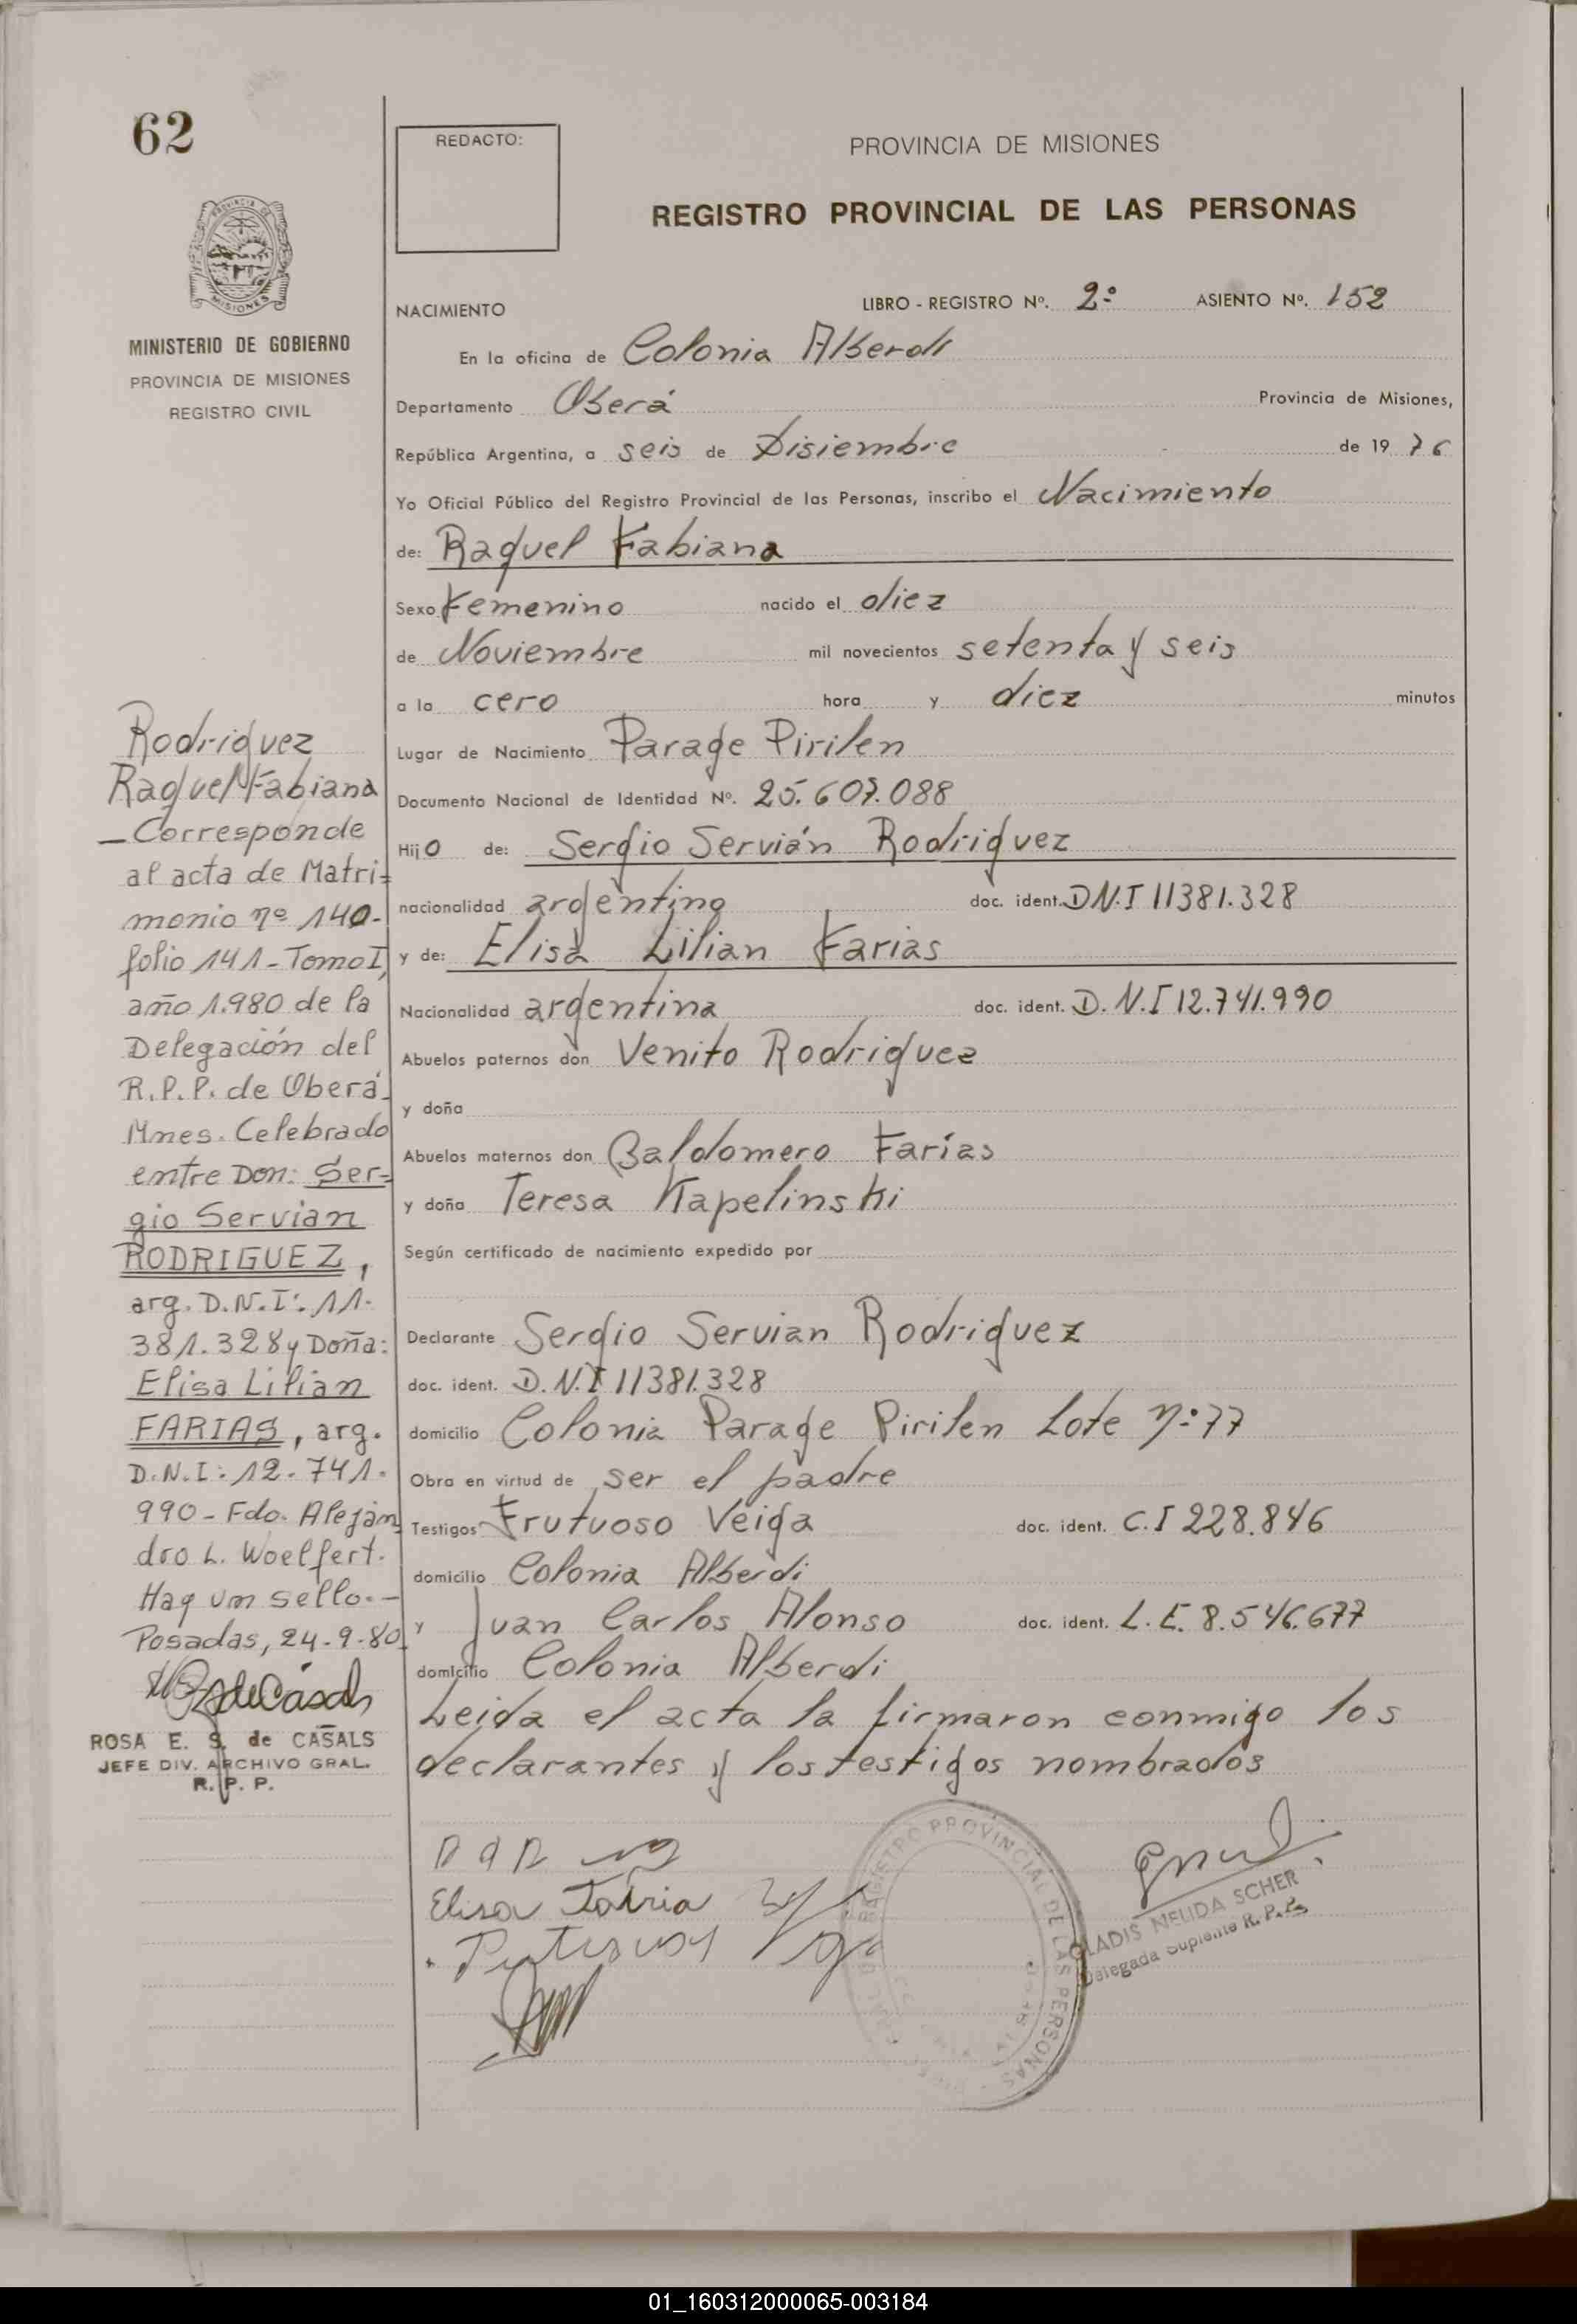 62
REDACTO:
PROVINCIA DE MISIONES
REGISTRO PROVINCIAL DE LAS PERSONAS
MISIONES
MINISTERIO DE GOBIERNO
PROVINCIA DE MISIONES
REGISTRO CIVIL
NACIMIENTO
LIBRO - REGISTRO Nº. 2º ASIENTO Nº. 152
En la oficina de Colonia Alberdi
Departamento Oberá Provincia de Misiones,
República Argentina, a seis de Disiembre de 19 76
Yo Oficial Público del Registro Provincial de las Personas, inscribo el Nacimiento
de: Raquel Fabiana
Sexo Femenino nacido el diez
de Noviembre mil novecientos setenta y seis
a la cero hora y diez minutos
Lugar de Nacimiento Parage Pirilen
Documento Nacional de Identidad Nº. 25.607.088
Hijo de: Sergio Servián Rodriguez
nacionalidad argentino doc. ident. DN.I 11381.328
y de: Elisa Lilian Farias
Nacionalidad argentina doc. ident. D.N.I 12.741.990
Abuelos paternos don Venito Rodriguez
y doña
Abuelos maternos don Baldomero Farías
y doña Teresa Kapelinski
Según certificado de nacimiento expedido por
Declarante Sergio Servian Rodriguez
doc. ident. D.N.I 11381.328
domicilio Colonia Parage Pirilen Lote nº 77
Obra en virtud de ser el padre
Testigos Frutuoso Veiga doc. ident. C.I 228.846
domicilio Colonia Alberdi
y Juan Carlos Alonso doc. ident. L.E. 8.546.677
domicilio Colonia Alberdi
Leida el acta la firmaron conmigo los
declarantes y los testigos nombrados
Rodriguez
Raquel Fabiana
_Corresponde
al acta de Matri=
monio nº 140-
folio 141-Tomo I,
año 1.980 de la
Delegación del
R.P.P. de Oberá-
Mnes. Celebrado
entre Don: Ser=
gio Servian
RODRIGUEZ,
arg. D.N.I: 11.
381.328 y Doña:
Elisa Lilian
FARIAS, arg.
D.N.I: 12.741.
990- Fdo. Alejan
dro L. Woelfert.
Hay un sello.-
Posadas, 24-9-80
ROSA E. S. de CASALS
JEFE DIV. ARCHIVO GRAL.
R. P. P.
Elisa Farria
REGISTRO PROVINCIAL DE LAS PERSONAS
GLADIS NELIDA SCHER
Delegada Suplente R. P. P.
01_160312000065-003184